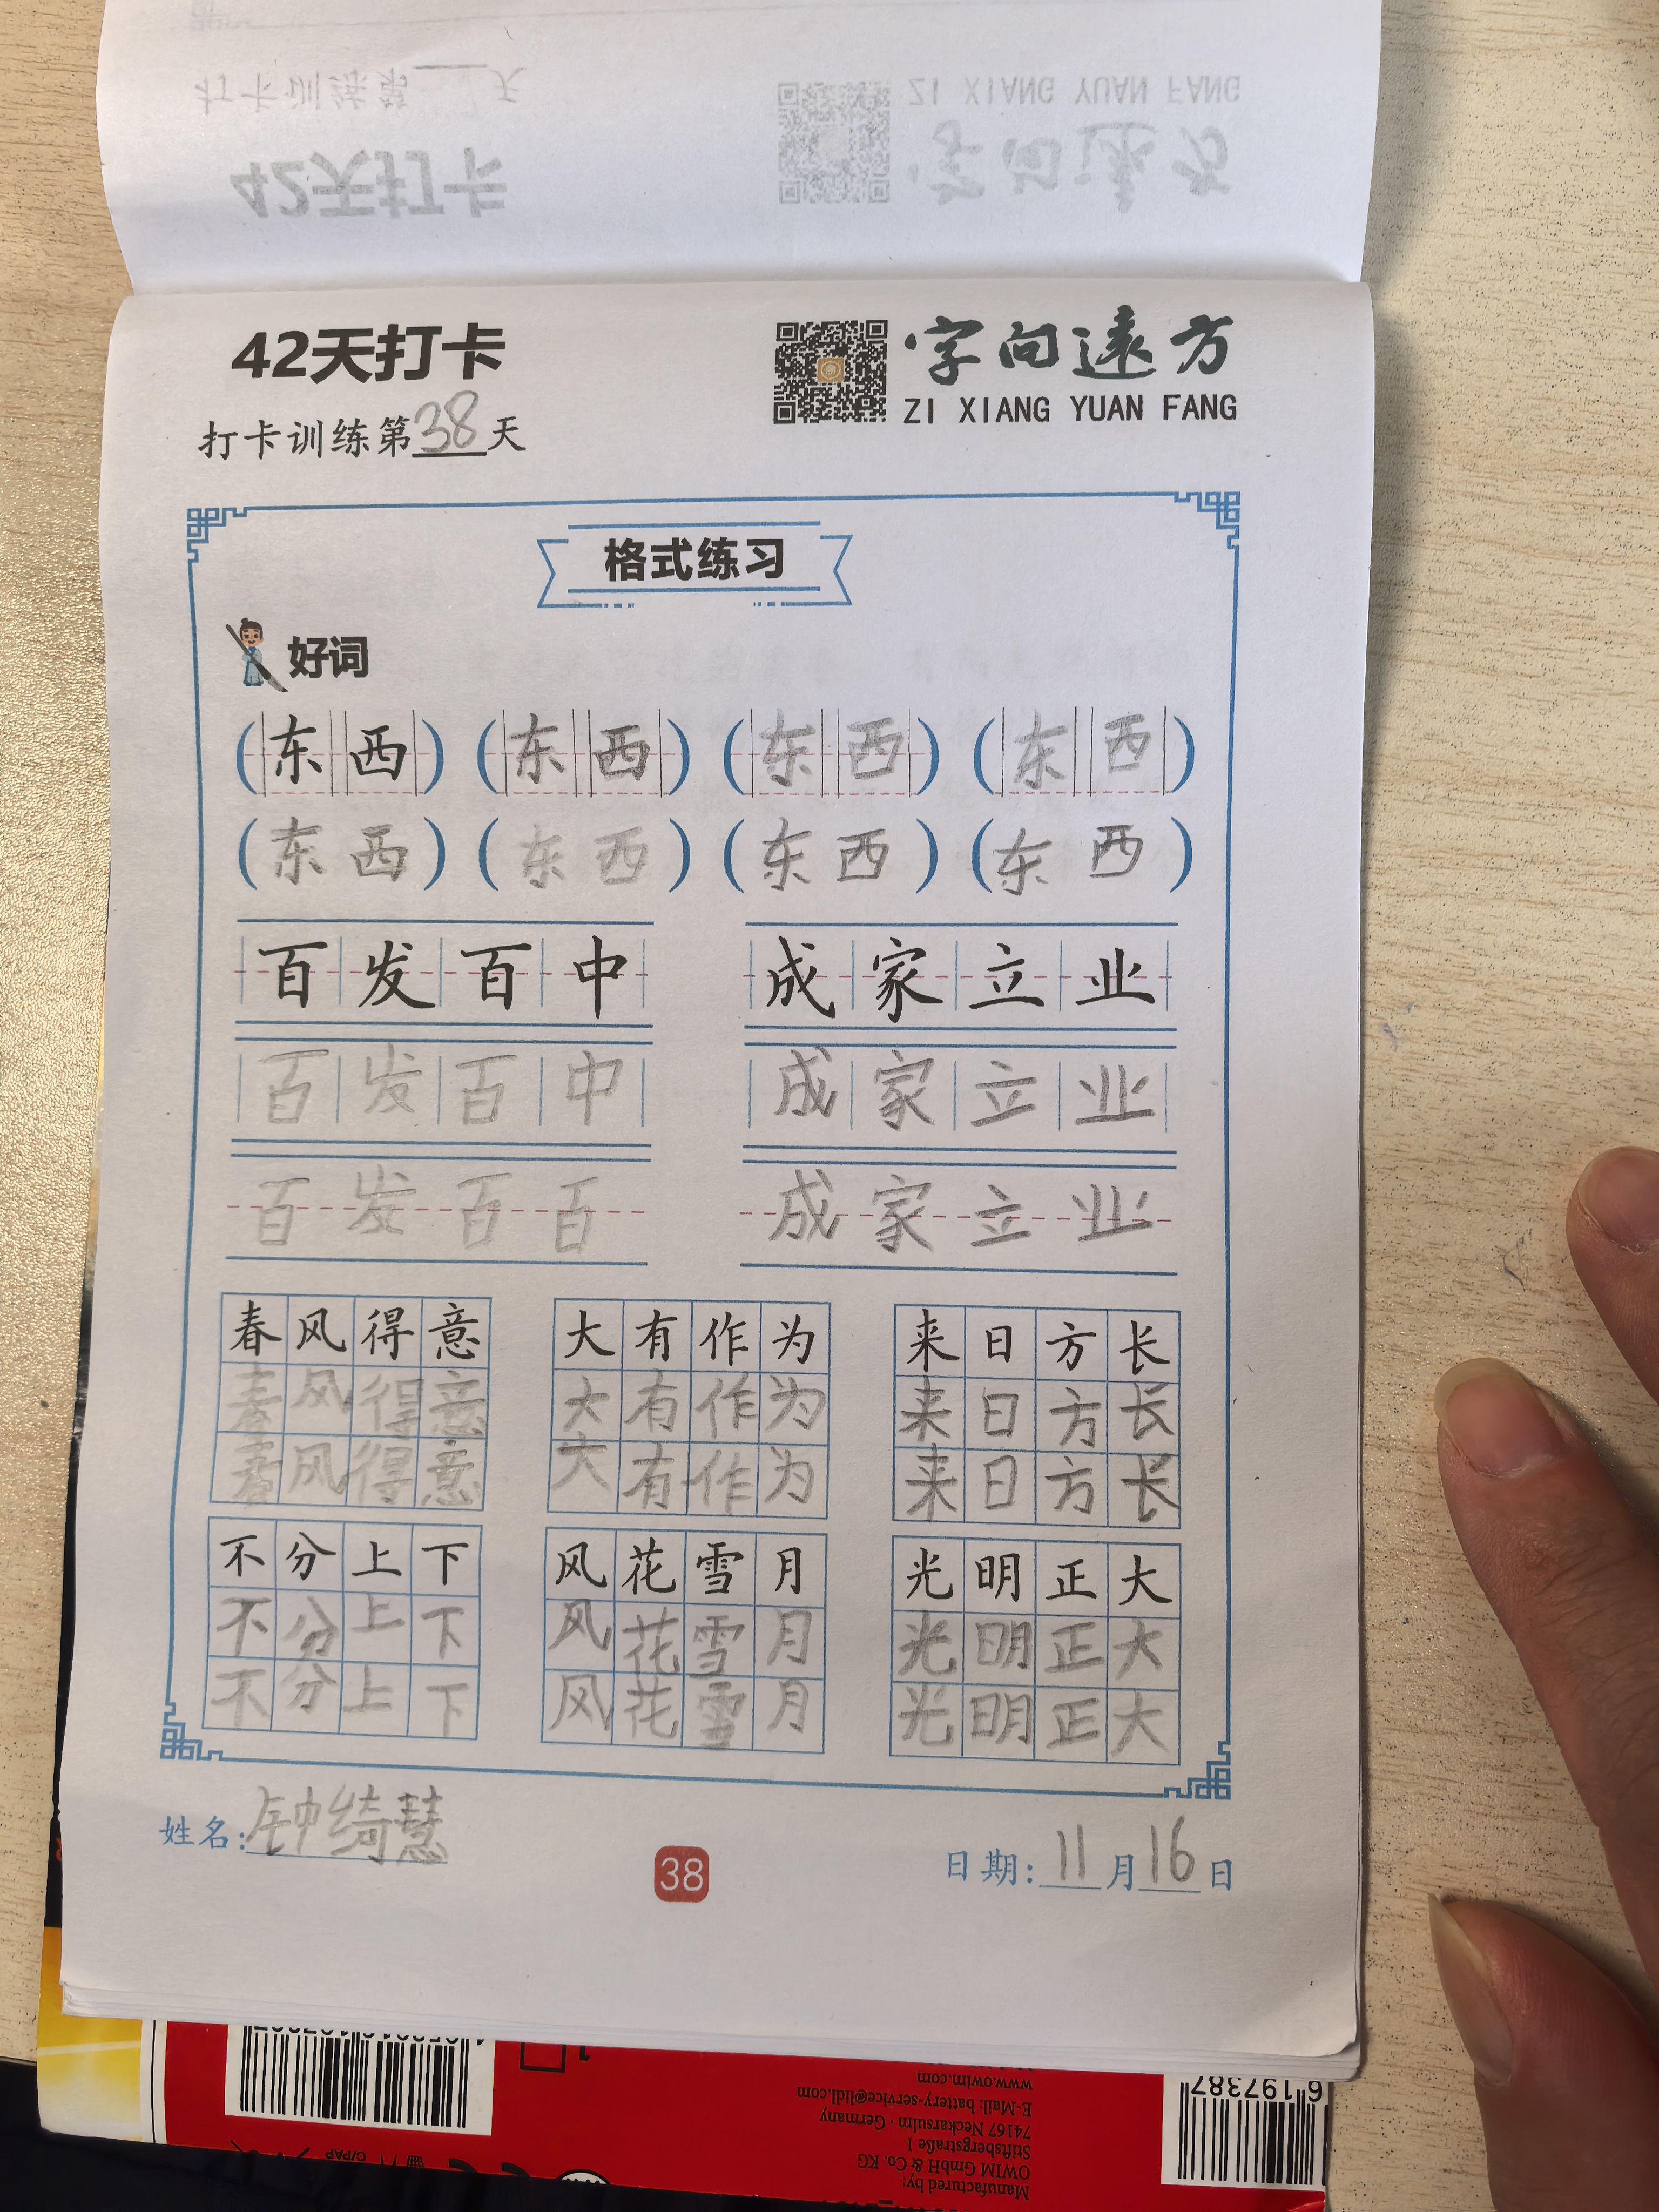 42天打卡
打卡训练第38天
字向遠方
ZI XIANG YUAN FANG
格式练习
好词
(东西) (东西) (东西) (东西)
(东西) (东西) (东西) (东西)
百发百中 成家立业
百发百中 成家立业
百发百百 成家立业
春风得意 大有作为 来日方长
春风得意 大有作为 来日方长
春风得意 大有作为 来日方长
不分上下 风花雪月 光明正大
不分上下 风花雪月 光明正大
不分上下 风花雪月 光明正大
姓名:钟绮慧
38
日期:11月16日
Manufactured by:
OWIM GmbH & Co. KG
Stiftsbergstraße 1
74167 Neckarsulm · Germany
E-Mail: battery-service@lidl.com
www.owim.com
6197387
C/PAP